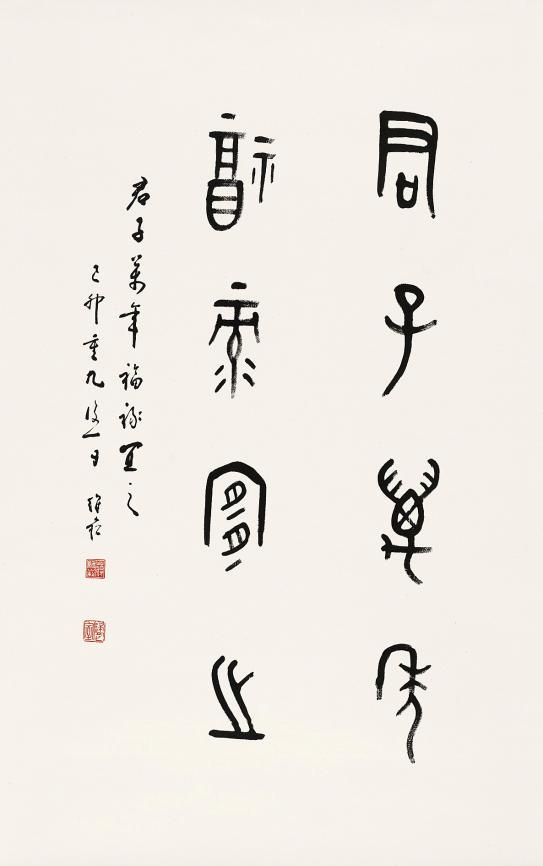 君子萬年
福祿宜之
君子萬年福祿宜之
己卯重九後一日